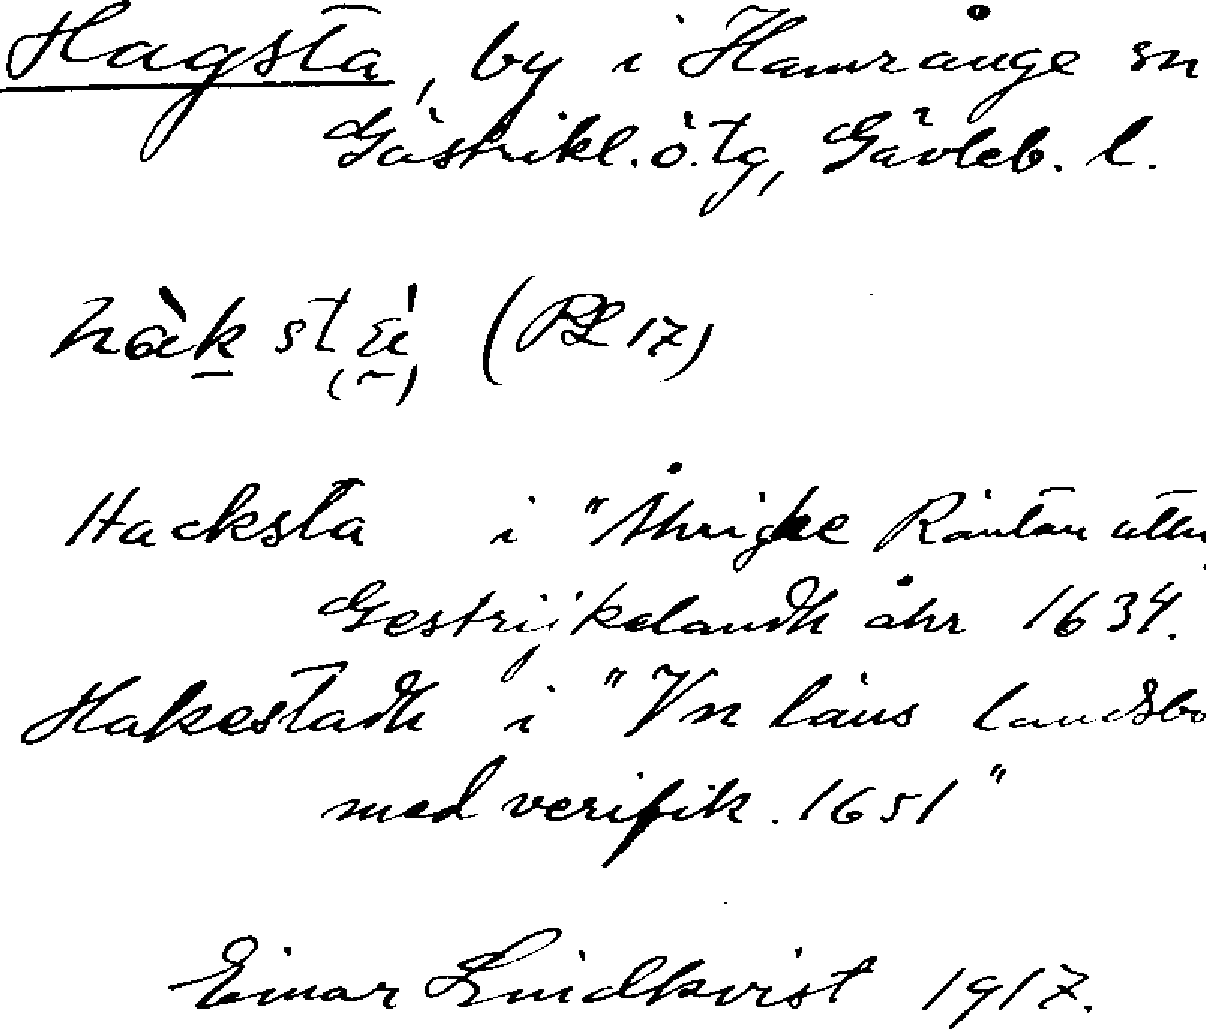 Hagsta, by i Hamrånge sn
Gästrikl. ö. tg, Gävleb. l.
hàkstà (PL 17)
Hacksta i "Åhrighe Räntan utu
Gestrijkelandh åhr 1634.
Hakestadh i "Vn läns landsbo
med verifik. 1651"
Einar Lindkvist 1917.